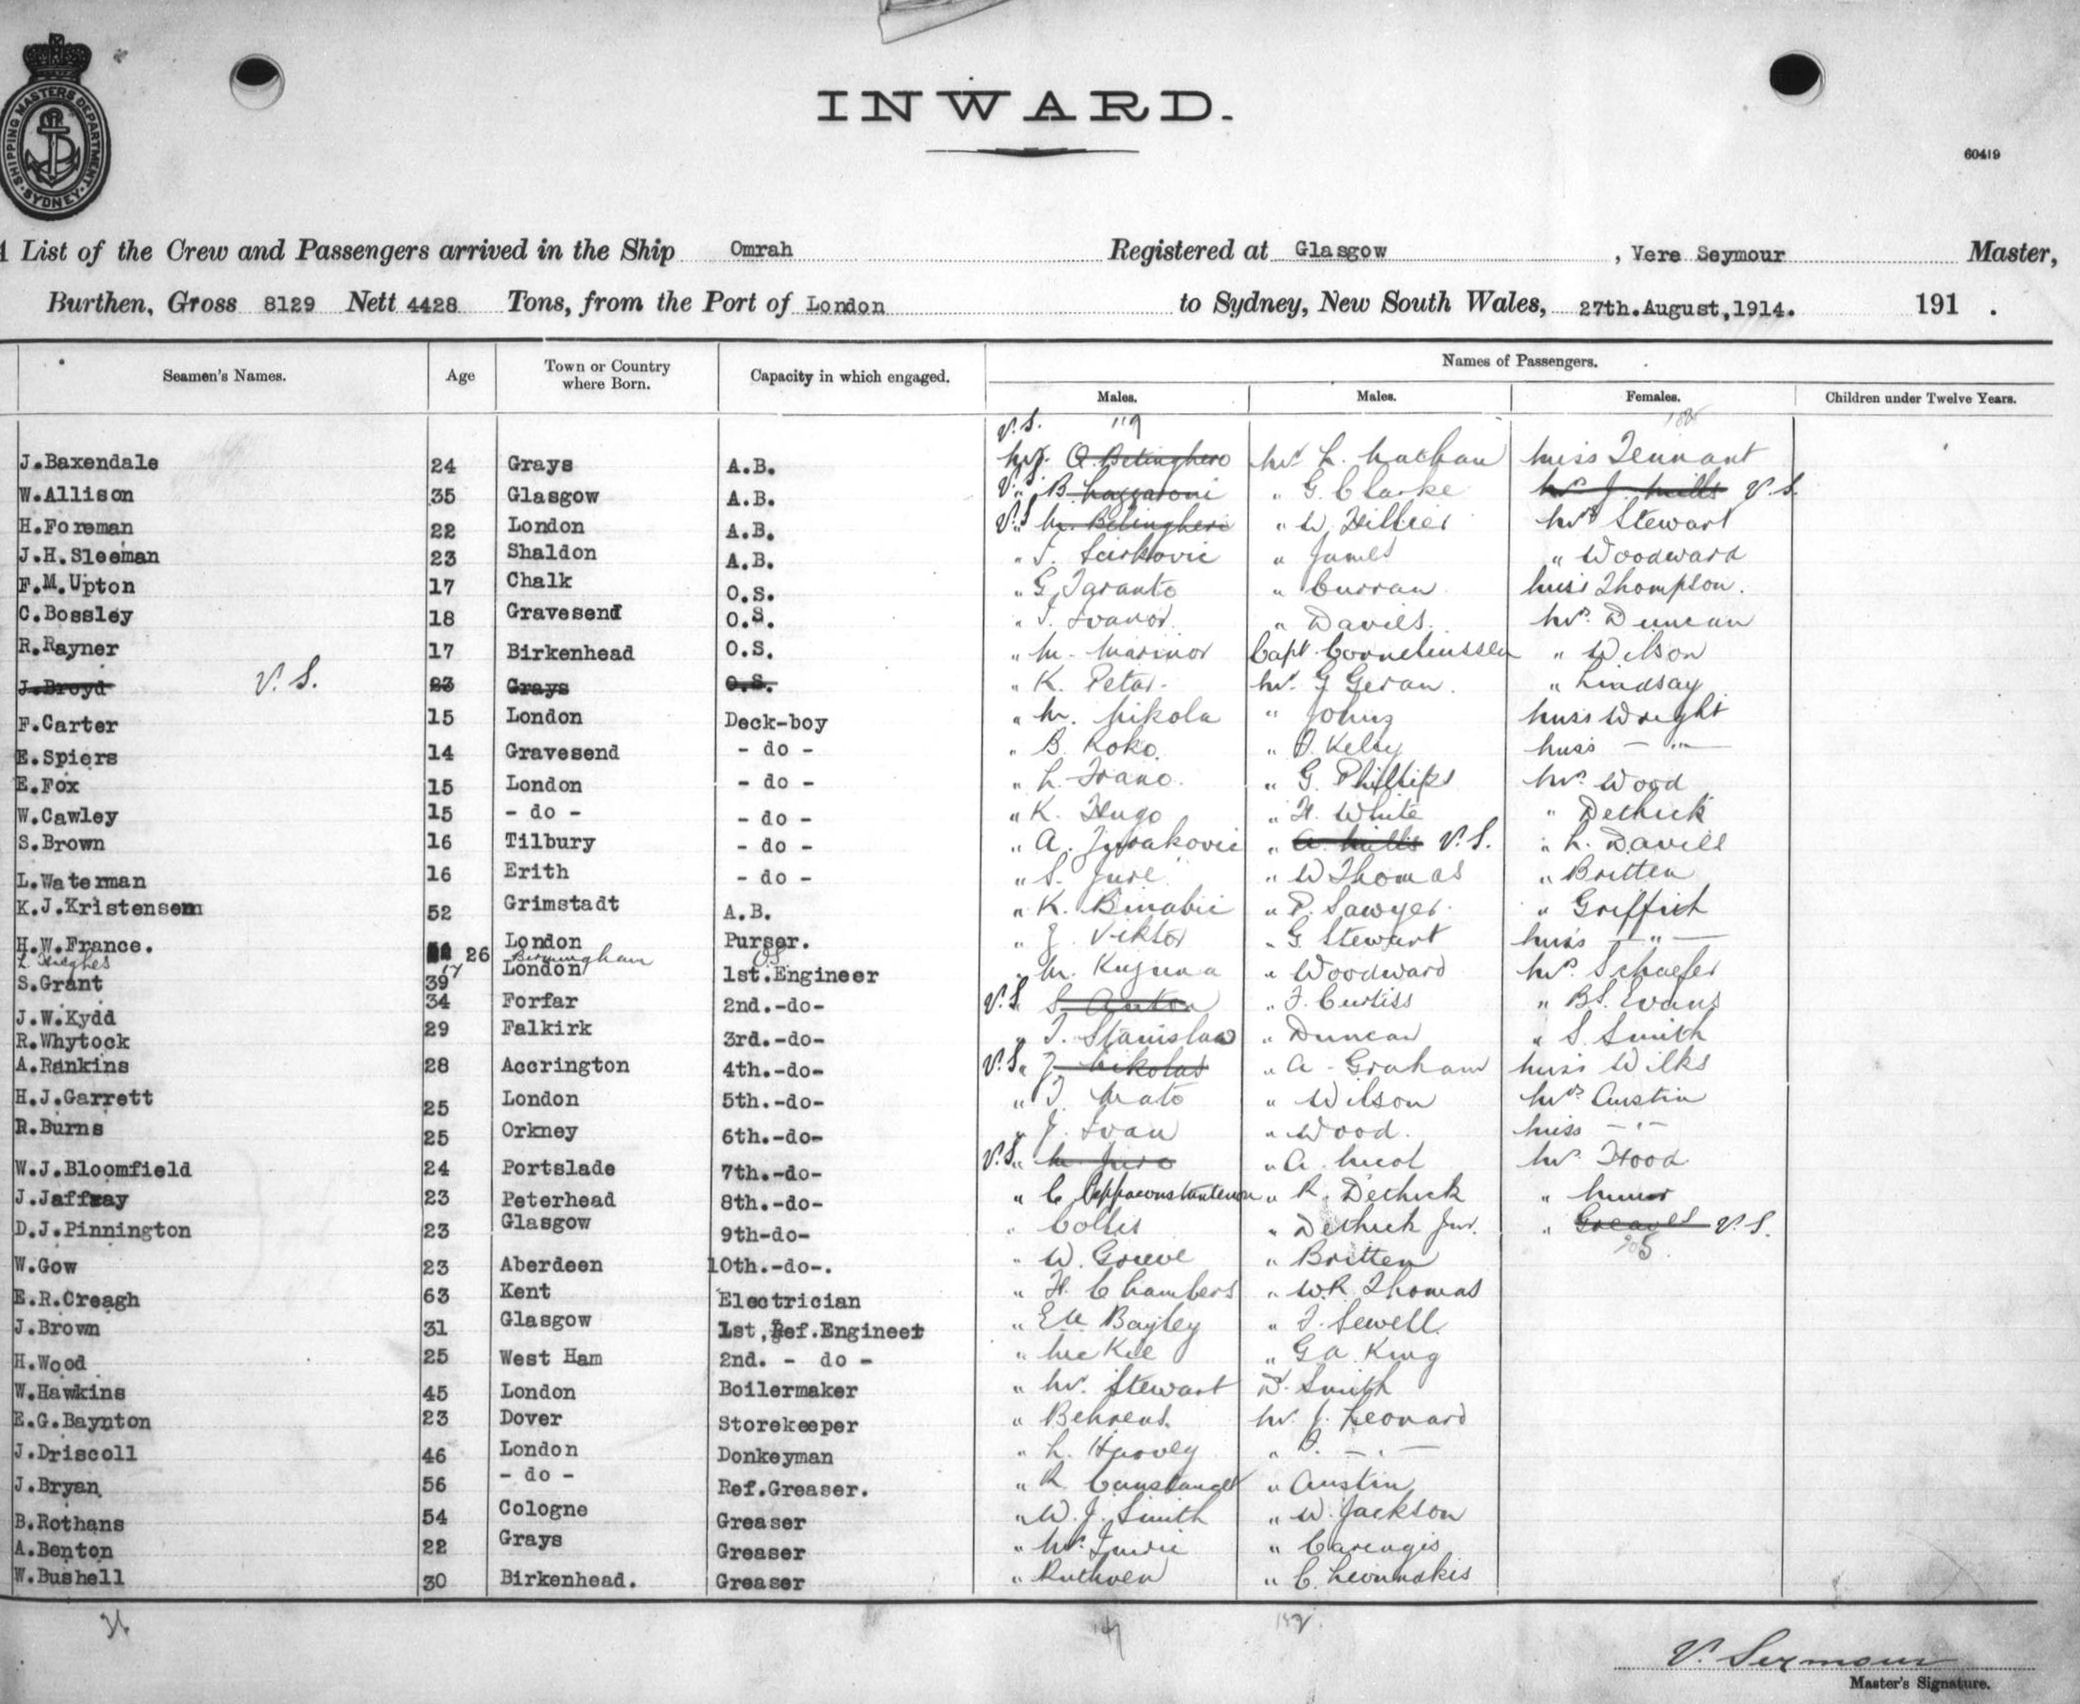 SHIPPING MASTERS DEPARTMENT · SYDNEY ·
INWARD.
60419
List of the Crew and Passengers arrived in the Ship Omrah Registered at Glasgow, Vere Seymour Master,
Burthen, Gross 8129 Nett 4428 Tons, from the Port of London to Sydney, New South Wales, 27th.August,1914. 191 .
Seamen's Names. Age Town or Country where Born. Capacity in which engaged. Names of Passengers.
Males. Males. Females. Children under Twelve Years.
V.S.
J.Baxendale 24 Grays A.B. Mr. L. Miss Tennant
W.Allison 35 Glasgow A.B. V.S. " B. Lazzaroni " G. Clarke Mrs J. Mills V.S.
H.Foreman 22 London A.B. V.S. " M. " W. Hillier Mrs Stewart
J.H.Sleeman 23 Shaldon A.B. " " James " Woodward
F.M.Upton 17 Chalk O.S. " G. Taranto " Curran Miss Thompson.
C.Bossley 18 Gravesend O.S. " " Davies. Mrs. Duncan
R.Rayner 17 Birkenhead O.S. " M. Marinov Capt. Corneliussen " Wilson
J.Broyd V.S. 23 Grays O.S. " K. Petar. Mr. G Geran. " Lindsay
F.Carter 15 London Deck-boy " M. Nikola " Johns Miss Wright
E.Spiers 14 Gravesend - do - " B. Roko. " Kelly Miss — " —
E.Fox 15 London - do - " L. Frano. " G. Phillips Mrs. Wood
W.Cawley 15 - do - - do - " K. Hugo " H. White " Dethick
S.Brown 16 Tilbury - do - " A. Jurakovic " A. Mills V.S. " L. Davies
L.Waterman 16 Erith - do - " S. Jure " W Thomas " Britten
K.J.Kristensen 52 Grimstadt A.B. " K. Binabic " P. Sawyer. " Griffith
H.W.France. 26 London Purser. " Viktor " G Stewart Miss — " —
L. Hughes 17 Birmingham OS
S.Grant 39 London 1st.Engineer " M. Kuzma " Woodward Mrs. Schaefer
J.W.Kydd 34 Forfar 2nd.-do- V.S. S Anton " F. Curtiss " B.S. Evans
R.Whytock 29 Falkirk 3rd.-do- " Stanislav " Duncan " S. Smith
A.Rankins 28 Accrington 4th.-do- V.S. " Nikolas " A. Graham Miss Wilks
H.J.Garrett 25 London 5th.-do- " Mato " Wilson Mrs Austin
R.Burns 25 Orkney 6th.-do- " J. Ivan " Wood. Miss — " —
W.J.Bloomfield 24 Portslade 7th.-do- V.S. " M Juro " A. Nicol Mrs. Hood
J.Jaffray 23 Peterhead 8th.-do- " C. " R. Dethick "
D.J.Pinnington 23 Glasgow 9th-do- " Collis " Dethick Jnr. " Greaves V.S.
W.Gow 23 Aberdeen 10th.-do-. " W. Grieve " Britten 205
E.R.Creagh 63 Kent Electrician " H. Chambers " W.R. Thomas
J.Brown 31 Glasgow 1st,Ref.Engineer " Bayley " F. Sewell.
H.Wood 25 West Ham 2nd. - do - " McKie " G A King
W.Hawkins 45 London Boilermaker " Wr. Stewart Dr. Smith
E.G.Baynton 23 Dover Storekeeper " Behrens. Mr. J. Leonard
J.Driscoll 46 London Donkeyman " L. Harvey " — " —
J.Bryan 56 - do - Ref.Greaser. " R " Austin
B.Rothans 54 Cologne Greaser " W. J. Smith " W. Jackson
A.Benton 22 Grays Greaser " " Carengis
W.Bushell 30 Birkenhead. Greaser " Ruthven " C.
36
V. Seymour
Master's Signature.